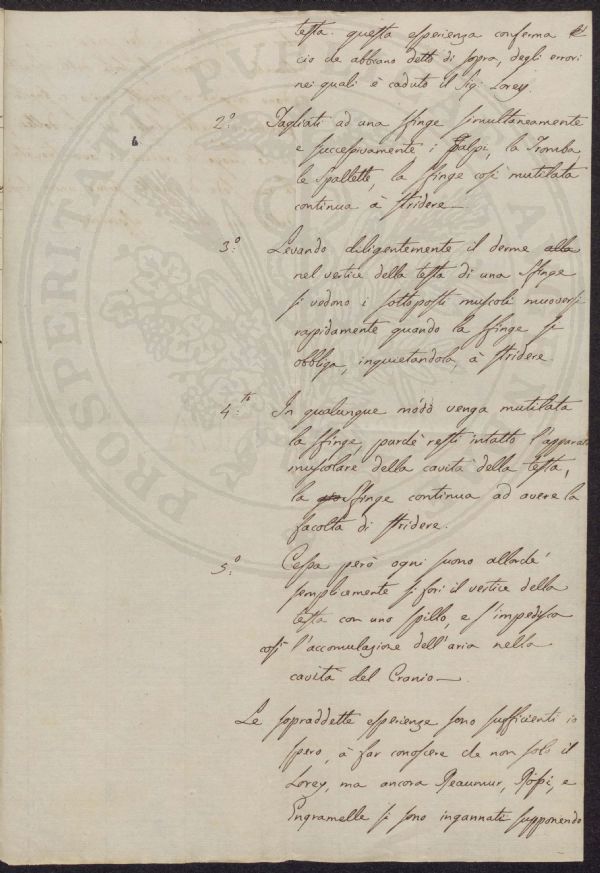 testa. questa esperienza conferma
cio che abbiano detto di sopra, degli errori
nei quali è caduto il Sig: Lorey.
2.° Tagliati ad una sfinge simultaneamente
e successivamente i Palpi, la Tromba,
le Spallette, la sfinge così mutilata
continua à stridere —
3.° Levando diligentemente il derme alla
nel vertice della testa di una Sfinge
si vedono i sottoposti muscoli muoversi
rapidamente quando la sfinge si
obbliga, inquietandola, à stridere
4.to In qualunque módo venga mutilata
la sfinge, purchè resti intatto l'apparato
muscolare della cavità della testa,
la Sfinge continua ad avere la
facoltà di stridere.
5.° Cessa però ogni suono allorchè
semplicemente si fori il vertice della
testa con uno spillo, e s'impedisca
così l'accomulazione dell'aria nella
cavità del Cranio —
Le sopraddette esperienze sono sufficienti io
spero, à far conoscere che non solo il
Lorey, ma ancora Reaumur, Rossi, e
Engramelle si sono ingannati supponendo